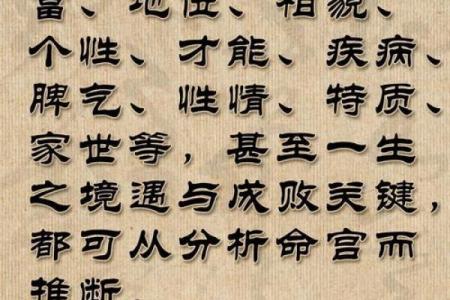 富、地位、相貌、
个性、才能、疾病、
脾气、性情、特质、
家世等，甚至一生
之境遇与成败关键，
都可从分析命宫而
推断、